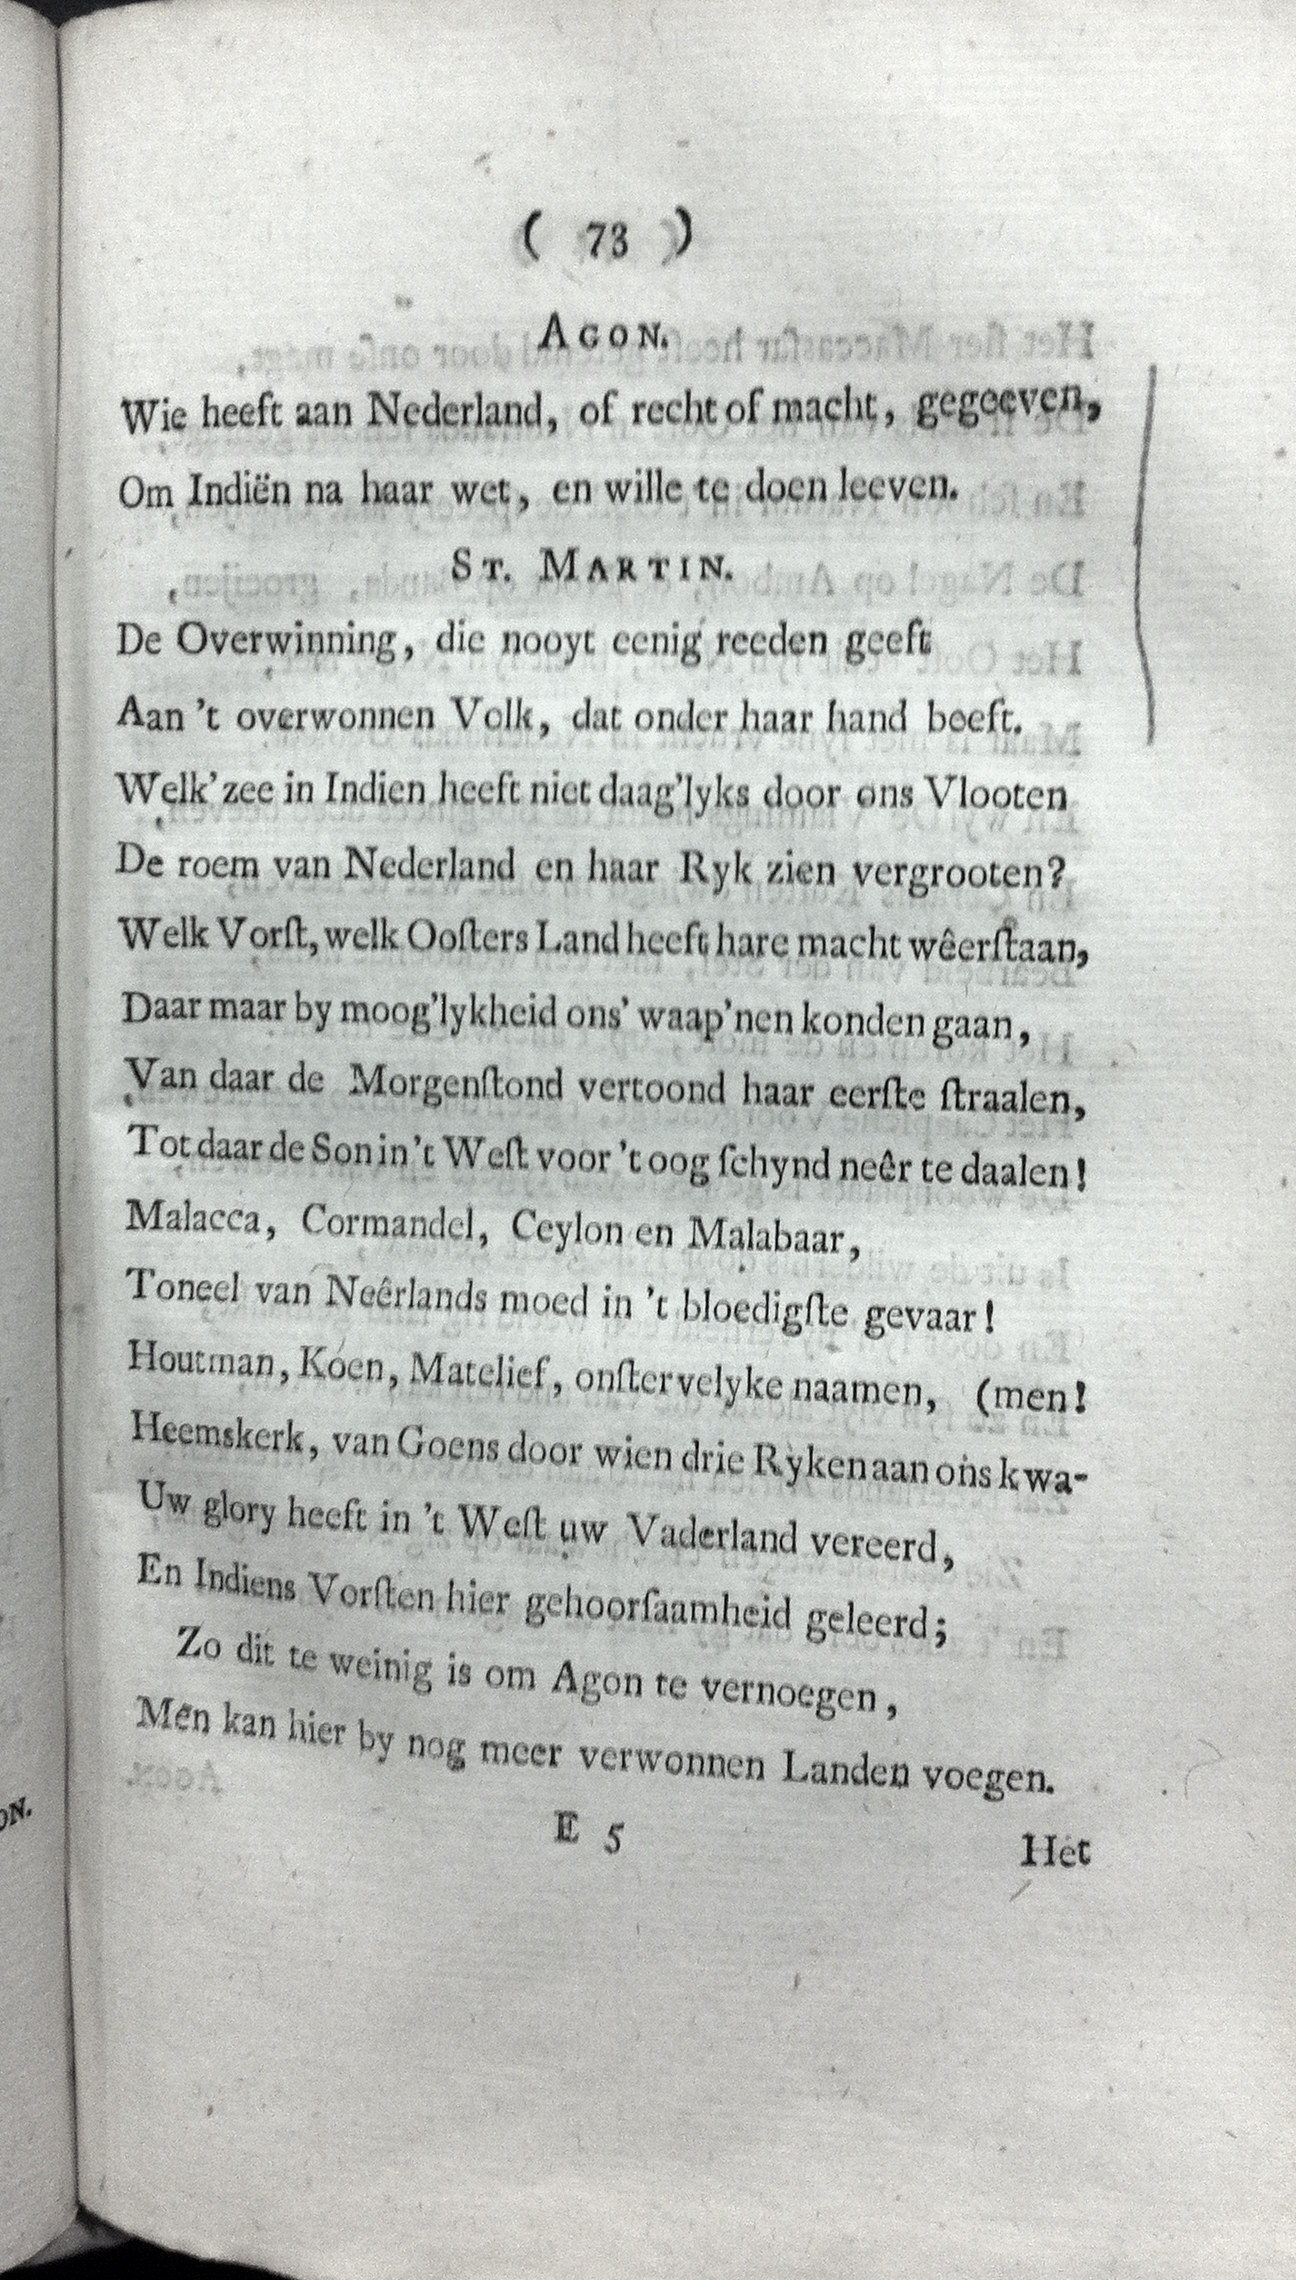 ( 73 )
AGON.
Wie heeft aan Nederland, of recht of macht, gegeeven,
Om Indiën na haar wet, en wille te doen leeven.
ST. MARTIN.
De Overwinning, die nooyt eenig reeden geeft
Aan 't overwonnen Volk, dat onder haar hand beeft.
Welk' zee in Indien heeft niet daag'lyks door ons Vlooten
De roem van Nederland en haar Ryk zien vergrooten?
Welk Vorſt, welk Ooſters Land heeft hare macht wêerſtaan,
Daar maar by moog'lykheid ons' waap'nen konden gaan,
Van daar de Morgenſtond vertoond haar eerſte ſtraalen,
Tot daar de Son in 't Weſt voor 't oog ſchynd neêr te daalen!
Malacca, Cormandel, Ceylon en Malabaar,
Toneel van Neêrlands moed in 't bloedigſte gevaar!
Houtman, Koen, Matelief, onſtervelyke naamen, (men!
Heemskerk, van Goens door wien drie Ryken aan ons kwa-
Uw glory heeft in 't Weſt uw Vaderland vereerd,
En Indiens Vorſten hier gehoorſaamheid geleerd;
Zo dit te weinig is om Agon te vernoegen,
Men kan hier by nog meer verwonnen Landen voegen.
E 5
Het